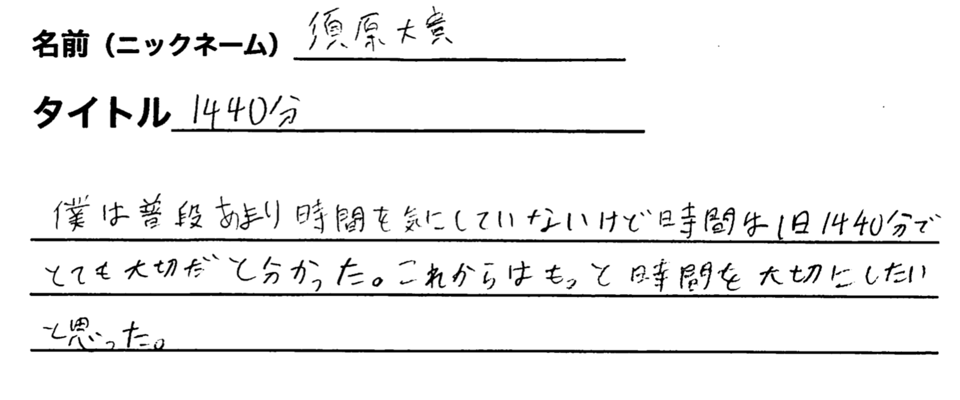 名前（ニックネーム）須原大
タイトル 1440分
僕は普段あまり時間を気にしていないけど時間は1日1440分で
とても大切だと分かった。これからはもっと時間を大切にしたい
と思った。